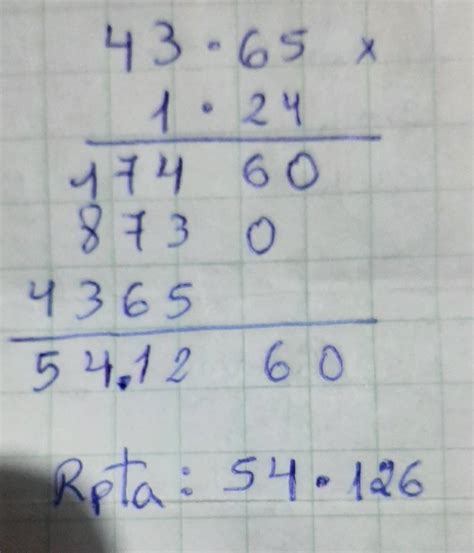 43·65 x
1·24
174 60
873 0
4365
54.12 60
Rpta: 54·126